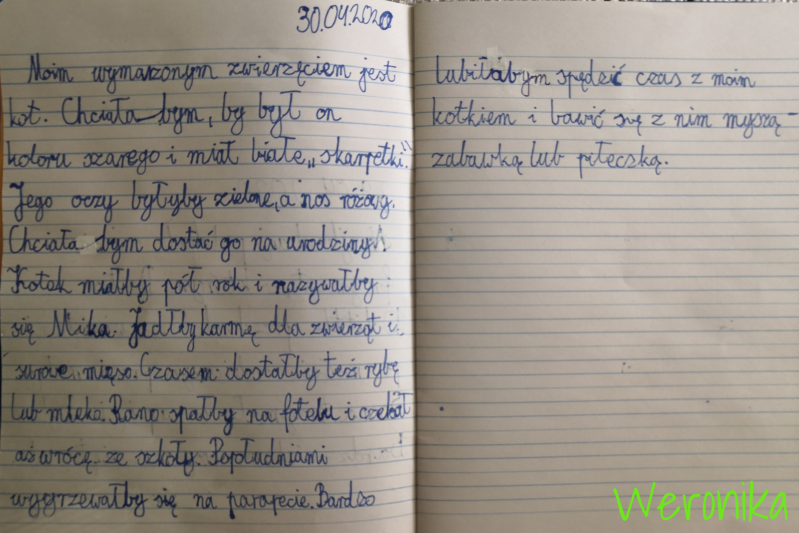 30.04.2020
Moim wymarzonym zwierzęciem jest
kot. Chciała bym, by był on
koloru szarego i miał białe „skarpetki”.
Jego oczy byłyby zielone, a nos różowy.
Chciała bym dostać go na urodziny.
Kotek miałby pół rok i nazywałby
się Mika. Jadłby karmę dla zwierząt i
surowe mięso. Czasem dostałby też rybę
lub mleko. Rano spałby na fotelu i czekał
aż wrócę ze szkoły. Popołudniami
wygrzewałby się na parapecie. Bardzo
lubiłabym spędzić czas z moim
kotkiem i bawić się z nim myszą-
zabawką lub piłeczką.
Weronika